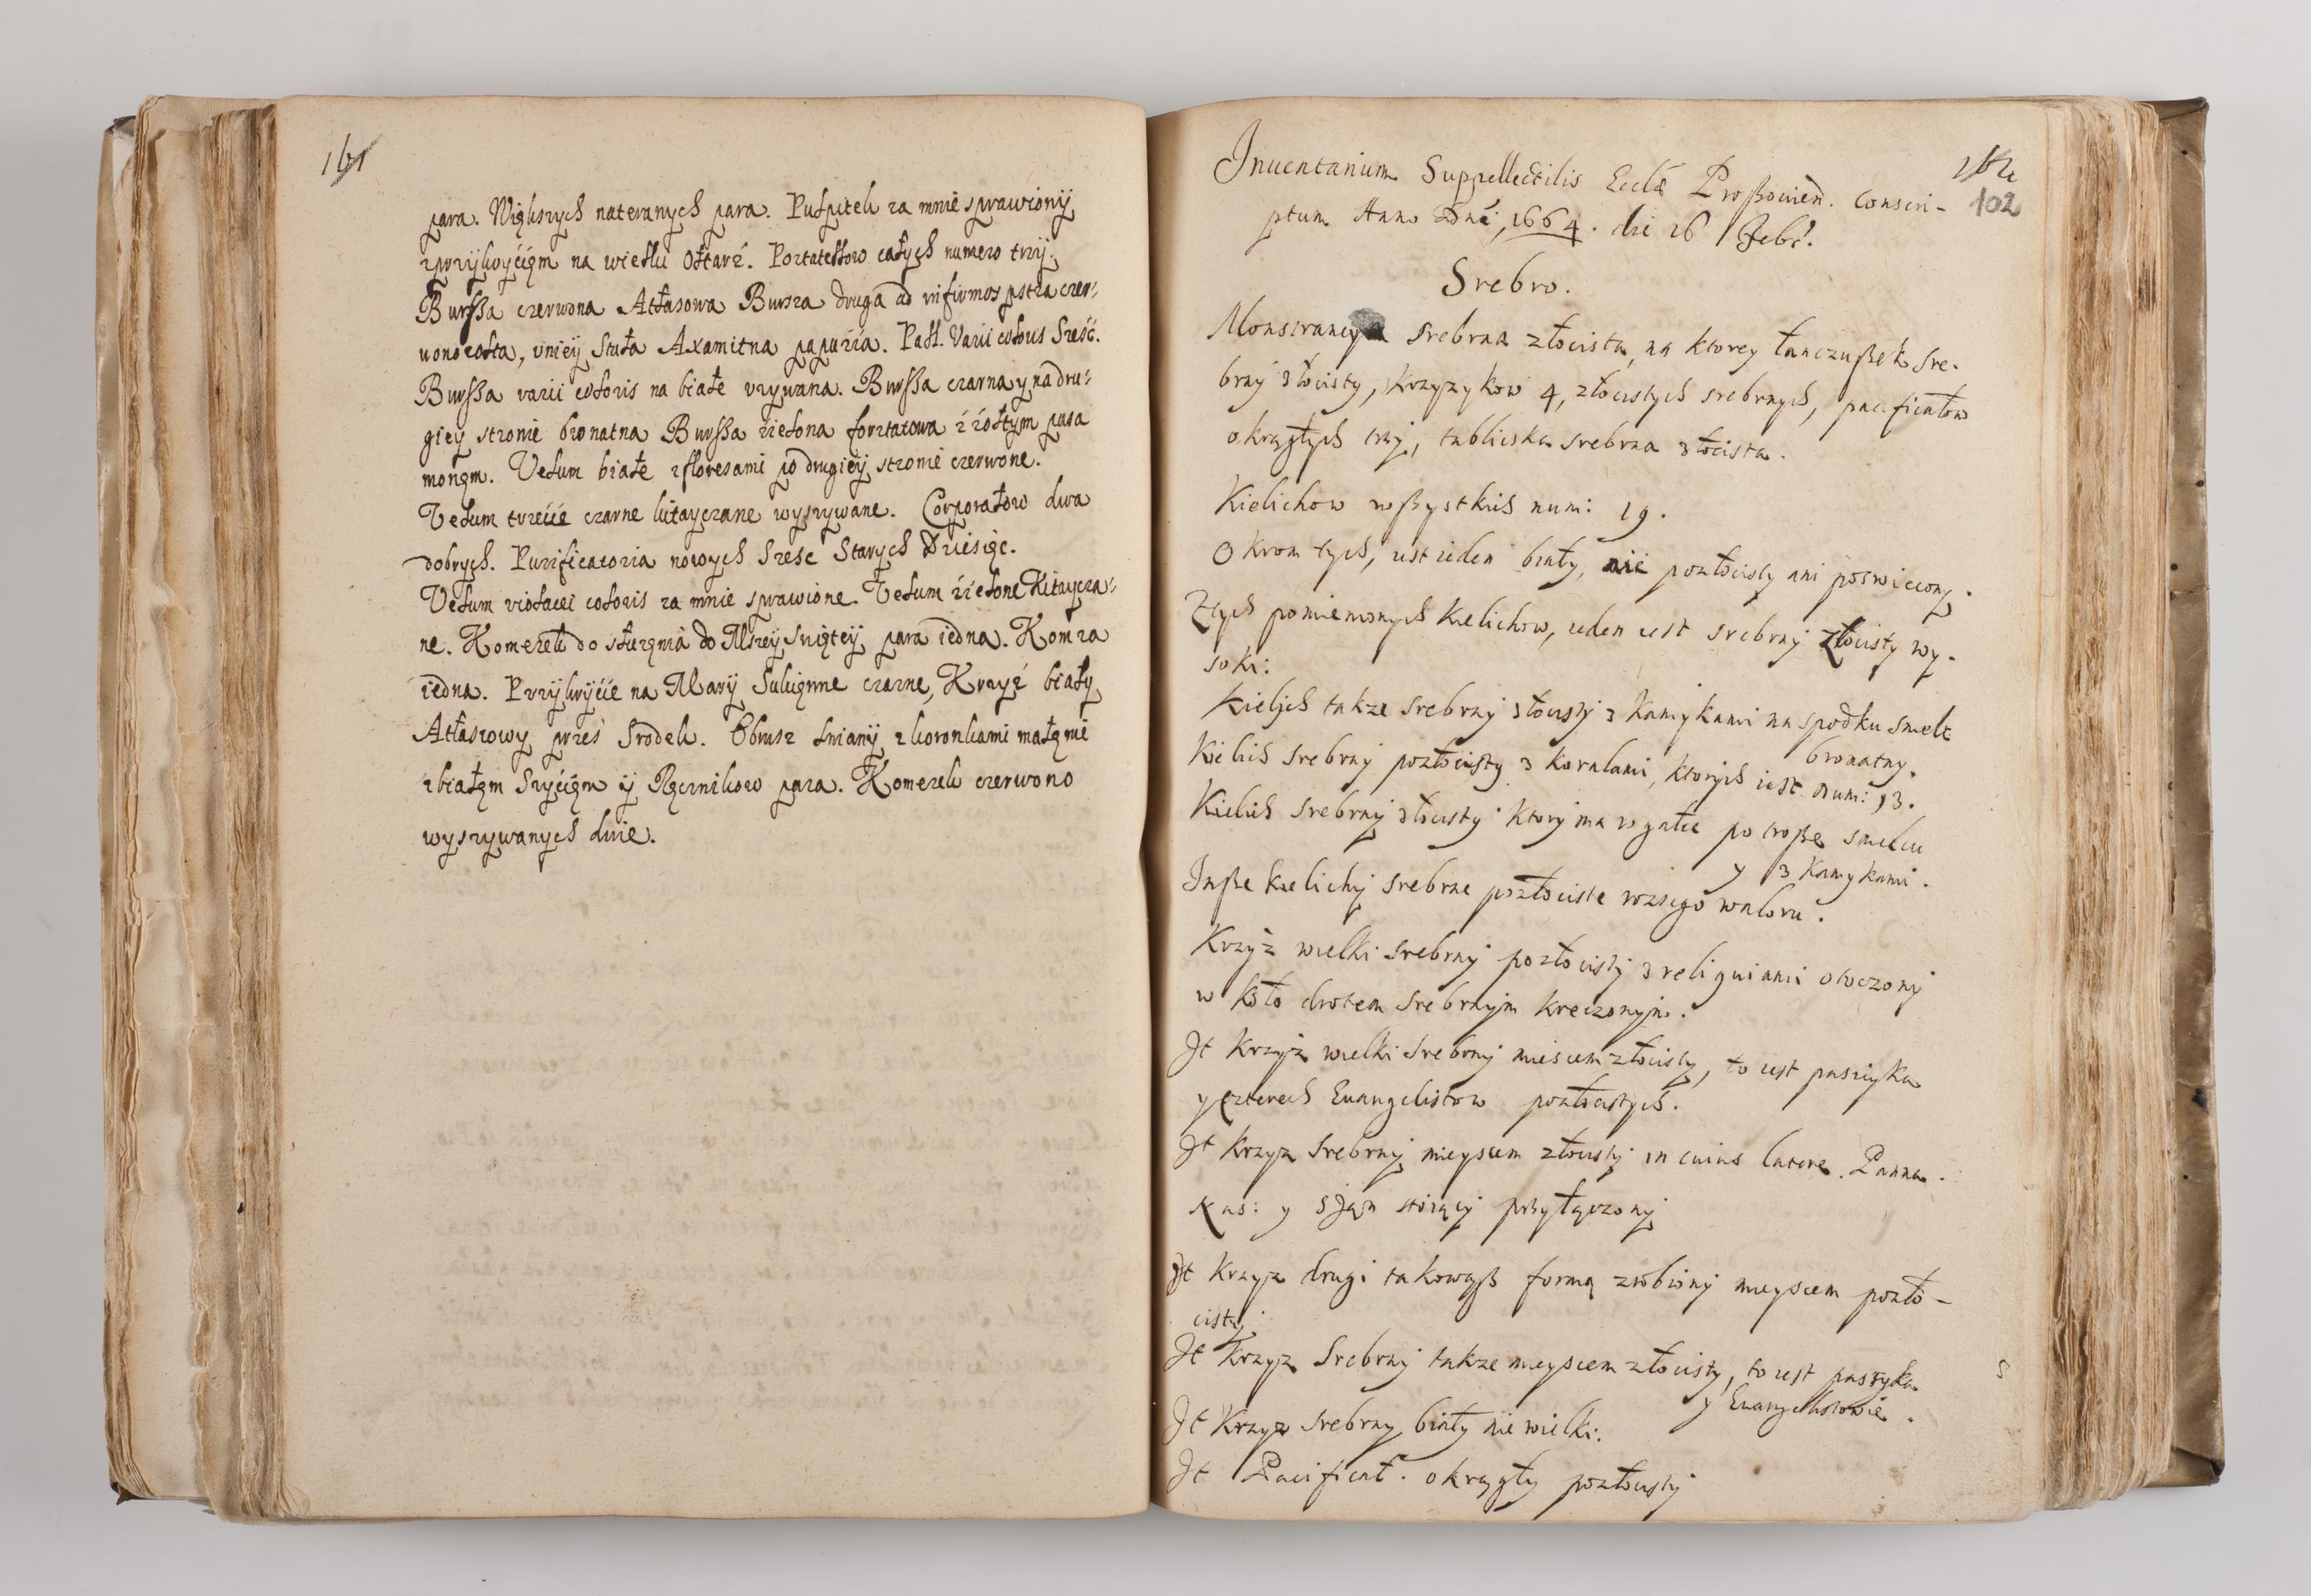 161
para. Większych nateranych para. Pulpitek za mnie sprawiony
z przykryćięm na wielki Ołtarz. Portatełłow całych numero trzy.
Burſſa czerwona Atłasowa Bursza druga ad infirmos pstra czer-
wonozołta, v niey Stuła Axamitna papuzia. Pall. Varii coloris Sześć.
Burſſa varii coloris na białe vzywana. Burſſa czarna y na dru-
giey stronie bronatna Burſſa zielona forztatowa z żołtym pasa
monęm. Velum białe z floresami po drugiey stronie czerwone.
Velum trzećie czarne kitayczane wyszywane. Corporałow dwa
dobrych. Purificatoria nowych Szesc Starych Dziesięc.
Velum violacei coloris za mnie sprawione. Velum zielone Kitaycza-
ne. Komeżek do służęnia do Mszey Swiętey para iedna. Komza
iedna. Przykryćie na Mary Sukięnne czarne, Krzyż biały
Atłaszowy przes Srodek. Obrusz lniany z koronkami
z białęm Szyćięm y Ręcznikow para. Komezek czerwono
wyszywanych dwie.
162
102
Inuentarium Suppellectilis Eccłæ Proßouien. conscri-
ptum Anno Dni, 1664. die 26 Febr.
Srebro.
Monstrancya srebrna złocista, na ktorey łanczußek sre-
brny złocisty, krzyzykow 4, złocistych srebrnych, pacificałow
okrągłych trzy, tabliczka srebrna złocista.
Kielichow wßystkich num: 19.
Okrom tych, iest ieden biały, nie pozłocisty ani poswiecony.
Z tych pomienionych kielichow, ieden iest srebrny złocisty wy-
soki:
Kielich takze srebrny złocisty z kamykami na spodku smelc
bronatny.
Kielich srebrny pozłocisty z koralami, ktorych iest num: 13.
Kielich srebrny złocisty ktory ma w gałce po troße smelcu
y z kamykami.
Inße kielichy srebrne pozłociste roznego waloru.
Krzyż wielki srebrny pozłocisty z reliquiami otoczony
w koło drotem srebrnym kreczonym.
It krzyz wielki srebrny mieiscem złocisty, to iest passyka
y czterech Euangelistow pozłocistych.
It krzyz srebrny mieyscem złocisty in cuius latere Panna
Mas: y S Jąn stoiący przyłączony
It krzyz drugi takowąß formą zrobiony mieyscem pozło-
cisty.
It krzyz srebrny takze mieyscem złocisty, to iest passyka
y Euangelistowie.
It krzyz srebrny biały nie wielki.
It Pacificał. okrągły pozłocisty